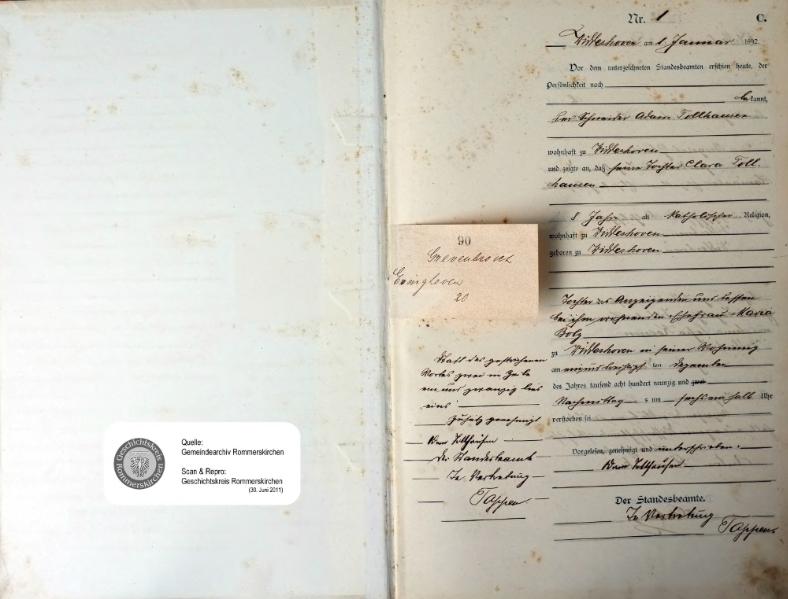 Quelle:
Gemeindearchiv Rommerskirchen
Scan & Repro:
Geschichtskreis Rommerskirchen
(30. Juni 2011)
Geschichtskreis
Rommerskirchen
90
Grevenbroich
20
Statt des gestrichenen
Wortes zwei in Zeile
ein und zwanzig lies
eins
Zusatz genehmigt
Adam Tollhausen
Der Standesbeamte
In Vertretung
Tappen
Nr. 1
C.
am 1 Januar 1892
Vor dem unterzeichneten Standesbeamten erschien heute, der
Persönlichkeit nach
bekannt,
der Schneider Adam Tollhausen
wohnhaft zu
und zeigte an, daß seine Tochter Clara Toll
hausen
8 Jahre alt, katholischer Religion,
wohnhaft zu
geboren zu
Tochter des Anzeigenden und dessen
bei ihm wohnenden Ehefrau Maria
zu in seiner Wohnung
am ein und dreißigsten Dezember
des Jahres tausend acht hundert neunzig und zwei
Nachmittag s um sechs ein halb Uhr
verstorben sei
Vorgelesen, genehmigt und unterschrieben.
Adam Tollhausen
Der Standesbeamte.
In Vertretung
Tappen